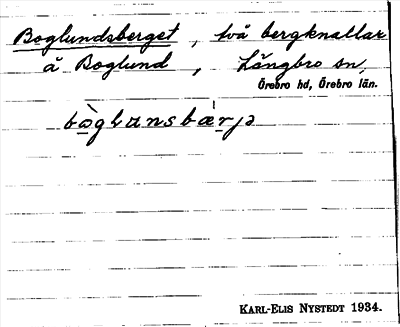 Boglundsberget, två bergknallar
å Boglund, Längbro sn,
Örebro hd, Örebro län.
bò̲glunsbæ̲̍rjə
KARL-ELIS NYSTEDT 1934.